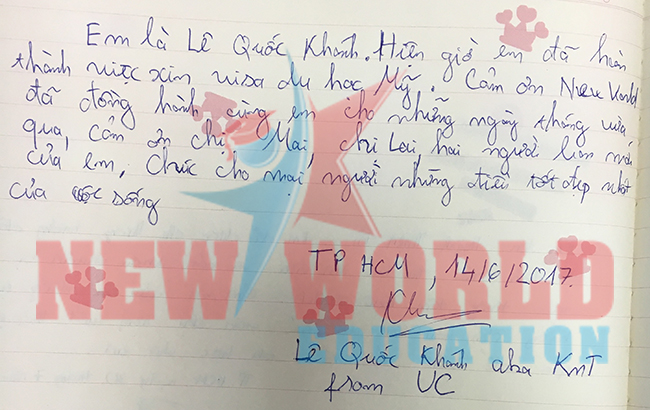 Em là Lê Quốc Khánh. Hiện giờ em đã hoàn
thành việc xin visa du học Mỹ. Cảm ơn New World
đã đồng hành cùng em cho những ngày tháng vừa
qua, cảm ơn chị Mai, chị Lại hai người
của em, chúc cho mọi người những điều tốt đẹp nhất
của cuộc sống
TP HCM, 14/6/2017.
NEW WORLD
EDUCATION
Lê Quốc Khánh aka KmT
from UC